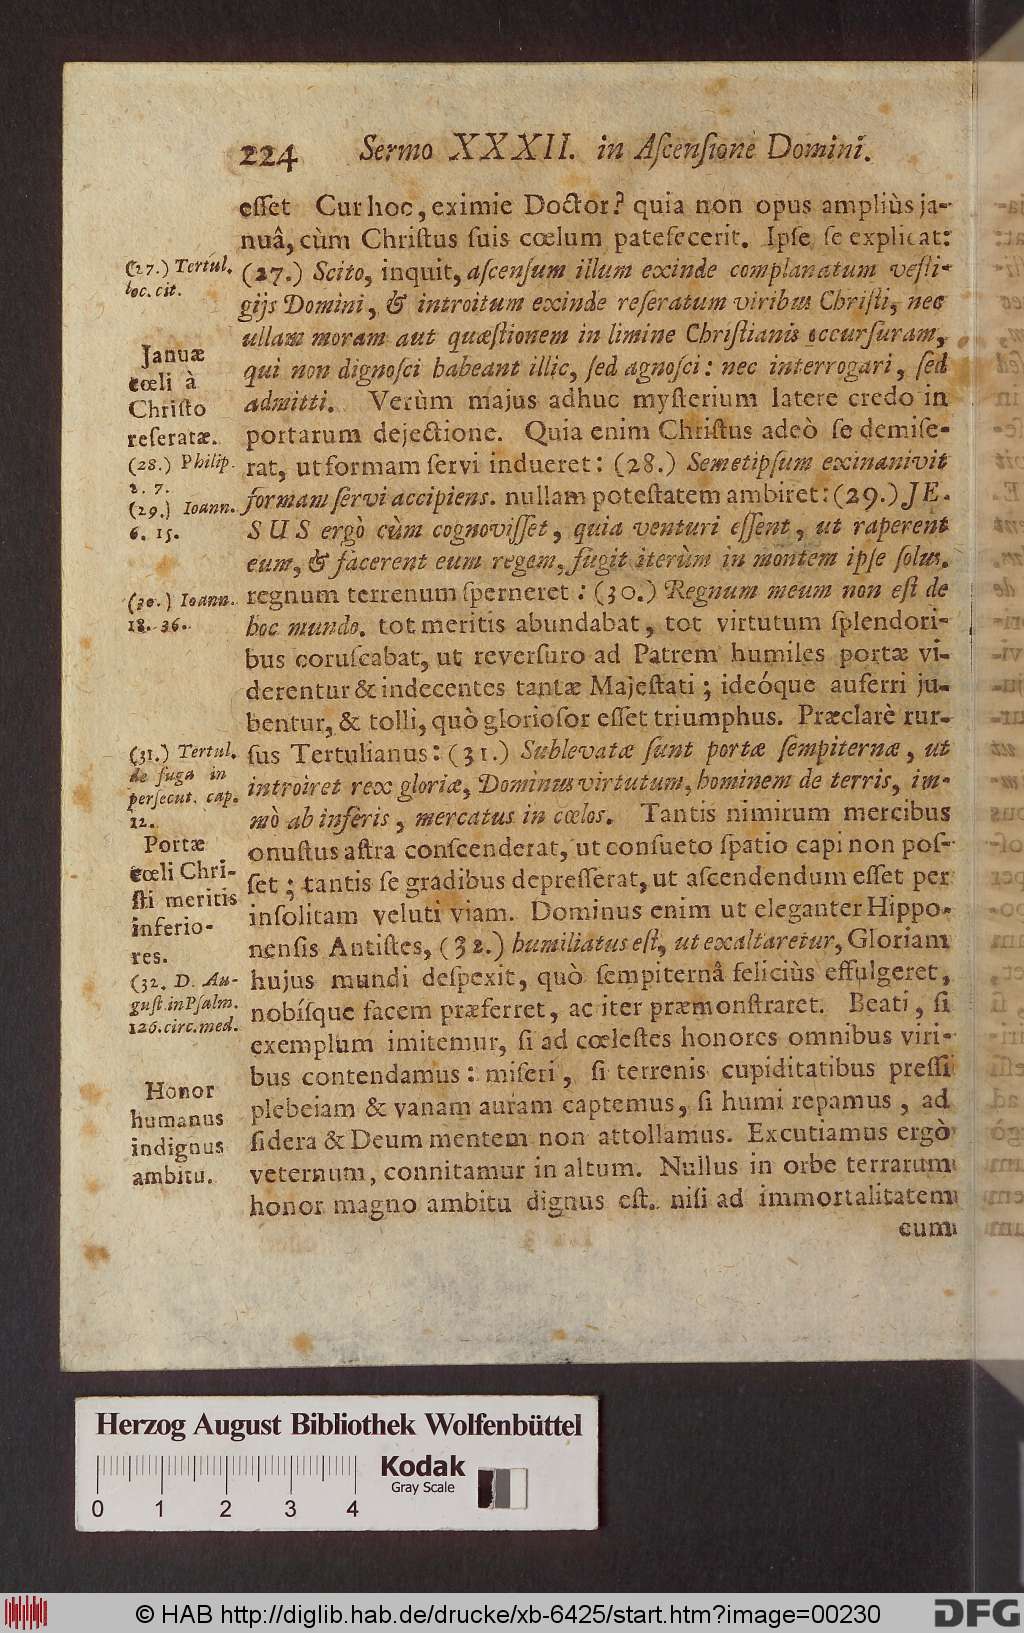 224 Sermo XXXII. in Aſcenſione Domini.
eſſet Cur hoc, eximie Doctor? quia non opus ampliùs ja-
nuâ, cùm Chriſtus ſuis cœlum patefecerit. Ipſe ſe explicat:
(27.) Scito, inquit, aſcenſum illum exinde complanatum veſti-
gijs Domini, & introitum exinde reſeratum viribus Chriſti, nec
ullam moram aut quæſtionem in limine Chriſtianis occurſuram,
qui non dignoſci habeant illic, ſed agnoſci: nec interrogari, ſed
admitti. Verùm majus adhuc myſterium latere credo in
portarum dejectione. Quia enim Chriſtus adeò ſe demiſe-
rat, ut formam ſervi indueret: (28.) Semetipſum exinanivit
formam ſervi accipiens. nullam poteſtatem ambiret: (29.) JE-
SUS ergò cùm cognoviſſet, quia venturi eſſent, ut raperent
eum, & facerent eum regem, fugit iterùm in montem ipſe ſolus.
regnum terrenum ſperneret: (30.) Regnum meum non eſt de
hoc mundo. tot meritis abundabat, tot virtutum ſplendori-
bus coruſcabat, ut reverſuro ad Patrem humiles portæ vi-
derentur & indecentes tantæ Majeſtati; ideóque auferri ju-
bentur, & tolli, quò glorioſor eſſet triumphus. Præclarè rur-
ſus Tertulianus: (31.) Sublevatæ ſunt portæ ſempiternæ, ut
introiret rex gloriæ, Dominus virtutum, hominem de terris, im-
mò ab inferis, mercatus in cœlos. Tantis nimirum mercibus
onuſtus aſtra conſcenderat, ut conſueto ſpatio capi non poſ-
ſet; tantis ſe gradibus depreſſerat, ut aſcendendum eſſet per
inſolitam veluti viam. Dominus enim ut eleganter Hippo-
nenſis Antiſtes, (32.) humiliatus eſt, ut exaltaretur, Gloriam
hujus mundi deſpexit, quò ſempiternâ feliciùs effulgeret,
nobíſque facem præferret, ac iter præmonſtraret. Beati, ſi
exemplum imitemur, ſi ad cœleſtes honores omnibus viri-
bus contendamus: miſeri, ſi terrenis cupiditatibus preſſi
plebeiam & vanam auram captemus, ſi humi repamus, ad
ſidera & Deum mentem non attollamus. Excutiamus ergò
veternum, connitamur in altum. Nullus in orbe terrarum
honor magno ambitu dignus eſt. niſi ad immortalitatem
cum
(27.) Tertul.
loc. cit.
Januæ
cœli à
Chriſto
reſeratæ.
(28.) Philip.
2. 7.
(29.) Ioann.
6. 15.
(30.) Ioann.
18. 36.
(31.) Tertul.
de fuga in
perſecut. cap.
12.
Portæ
cœli Chri-
ſti meritis
inferio-
res.
(32. D. Au-
guſt. in Pſalm.
126. circ. med.
Honor
humanus
indignus
ambitu.
Herzog August Bibliothek Wolfenbüttel
Kodak
Gray Scale
0 1 2 3 4
© HAB http://diglib.hab.de/drucke/xb-6425/start.htm?image=00230
DFG